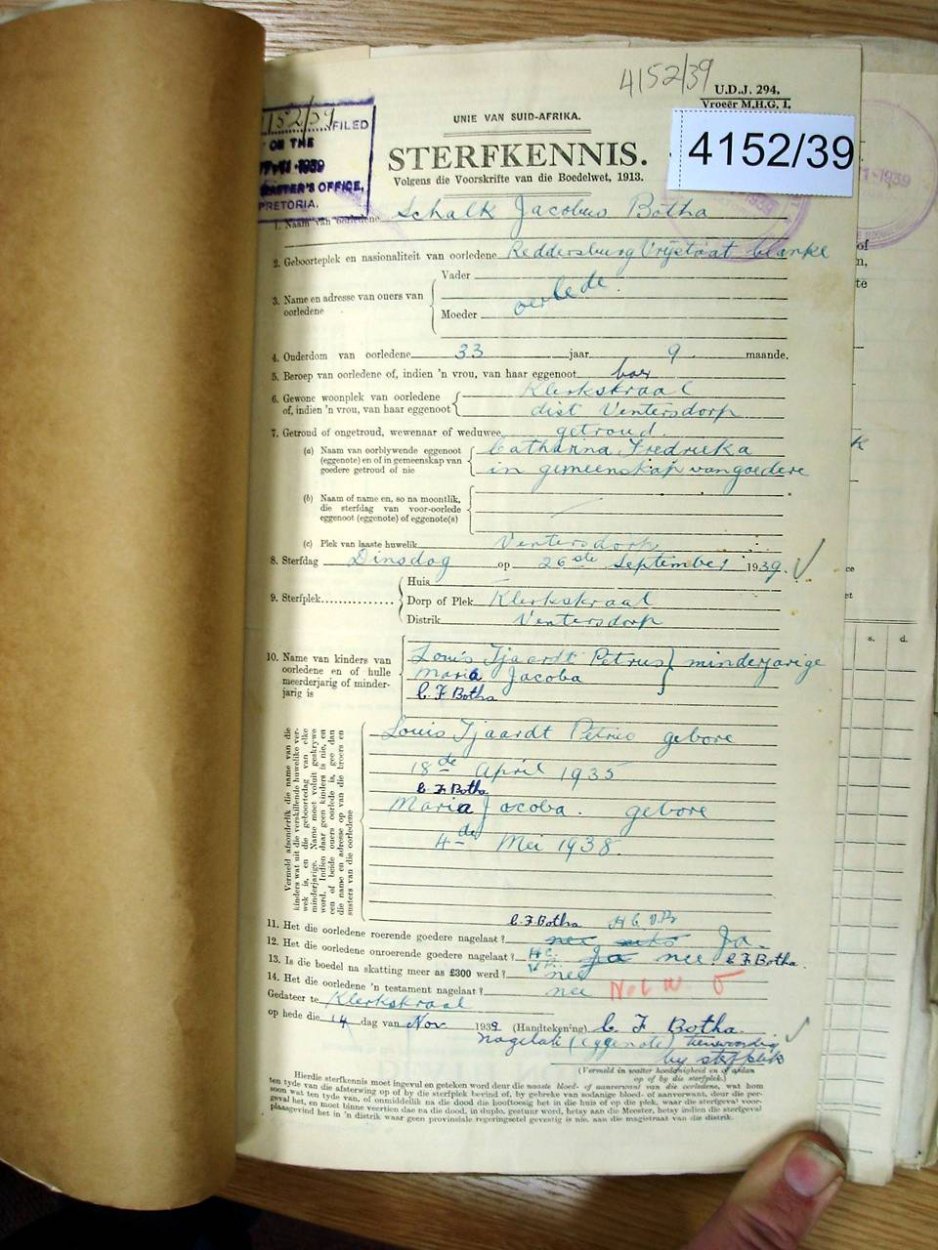 4152/39
U.D.J. 294.
Vroeër M.H.G. I.
UNIE VAN SUID-AFRIKA.
4152/39
152/39 FILED
ON THE
1939
MASTER'S OFFICE,
PRETORIA.
STERFKENNIS.
Volgens die Voorskrifte van die Boedelwet, 1913.
1. Naam van oorledene Schalk Jacobus Botha
2. Geboorteplek en nasionaliteit van oorledene Reddersburg Vrijstaat blanke
3. Name en adresse van ouers van oorledene
Vader
oorlede.
Moeder
4. Ouderdom van oorledene 33 jaar 9 maande.
5. Beroep van oorledene of, indien 'n vrou, van haar eggenoot boer
6. Gewone woonplek van oorledene Klerkskraal
of, indien 'n vrou, van haar eggenoot dist Ventersdorp
7. Getroud of ongetroud, wewenaar of weduwee getroud
(a) Naam van oorblywende eggenoot Catharina Fredrieka
(eggenote) en of in gemeenskap van goedere getroud of nie in gemeenskap van goedere
(b) Naam of name en, so na moontlik,
die sterfdag van voor-oorlede
eggenoot (eggenote) of eggenote(s)
(c) Plek van laaste huwelik Ventersdorp
8. Sterfdag Dinsdag op 26ste September 1939.
9. Sterfplek
Huis
Dorp of Plek Klerkskraal
Distrik Ventersdorp
10. Name van kinders van
oorledene en of hulle
meerderjarig of minder-
jarig is
Louis Tjaardt Petrus } minderjarige
Maria Jacoba
C F Botha
Vermeld afsonderlik die name van die
kinders wat uit die verskillende huwelike ver-
wek is, en die geboortedag van elke
minderjarige. Name moet voluit geskrywe
word. Indien daar geen kinders is nie, en
een of beide ouers oorlede is, gee dan
die name en adresse op van die broers en
susters van die oorledene
Louis Tjaardt Petrus gebore
18de April 1935
C F Botha
Maria Jacoba. gebore
4de Mei 1938.
C F Botha
11. Het die oorledene roerende goedere nagelaat? nee niks Ja.
12. Het die oorledene onroerende goedere nagelaat? Ja nee C F Botha.
13. Is die boedel na skatting meer as £300 werd? nee
14. Het die oorledene 'n testament nagelaat? nee
Gedateer te Klerkskraal
op hede die 14 dag van Nov 1939 (Handtekening) C F Botha.
nagelate (eggenote) teenwoordig
by sterfplek
(Vermeld in watter hoedanigheid en of aldan
op of by die sterfplek.)
Hierdie sterfkennis moet ingevul en geteken word deur die naaste bloed- of aanverwant van die oorledene, wat hom
ten tyde van die afsterwing op of by die sterfplek bevind of, by gebreke van sodanige bloed- of aanverwant, deur die per-
soon wat ten tyde van, of onmiddellik na die dood die hooftoesig het in die huis of op die plek, waar die sterfgeval voor-
geval het, en moet binne veertien dae na die dood, in duplo, gestuur word, hetsy aan die Meester, hetsy indien die sterfgeval
plaasgevind het in 'n distrik waar geen provinsiale regeringsetel gevestig is nie, aan die magistraat van die distrik.
1939
of
n,
te
s. d.